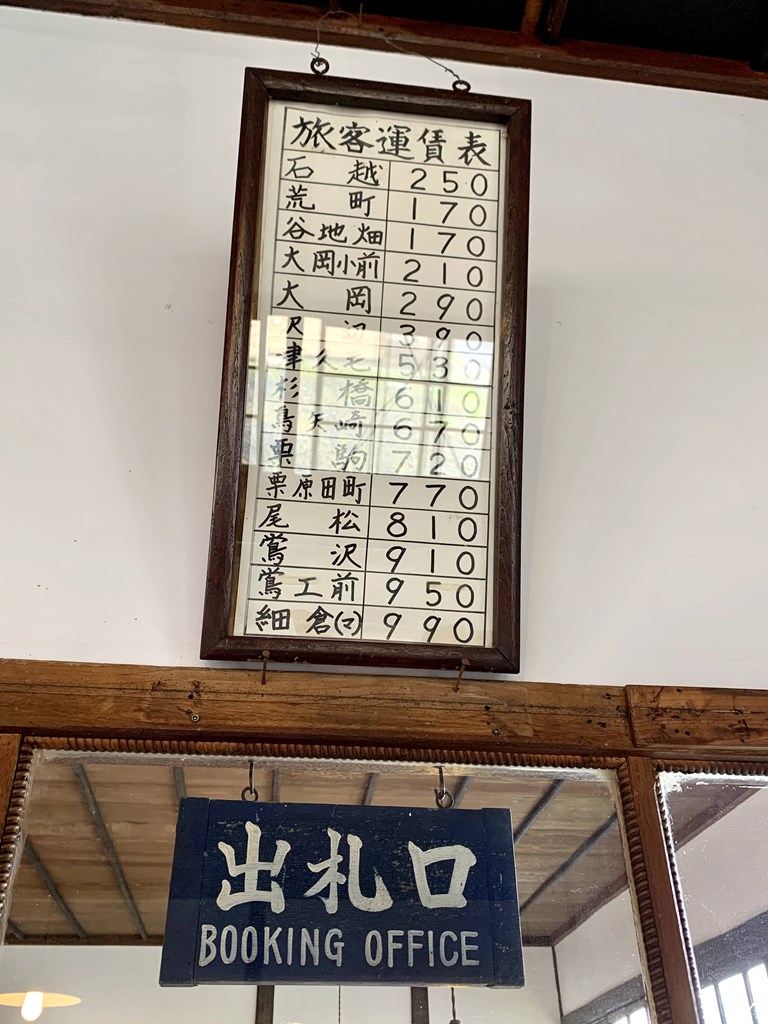 旅客運賃表
石越 250
荒町 170
谷地畑 170
大岡小前 210
大岡 290
沢辺 390
津久毛 530
杉橋 610
鳥矢崎 670
栗駒 720
栗原田町 770
尾松 810
鶯沢 910
鶯工前 950
細倉(マ) 990
出札口
BOOKING OFFICE